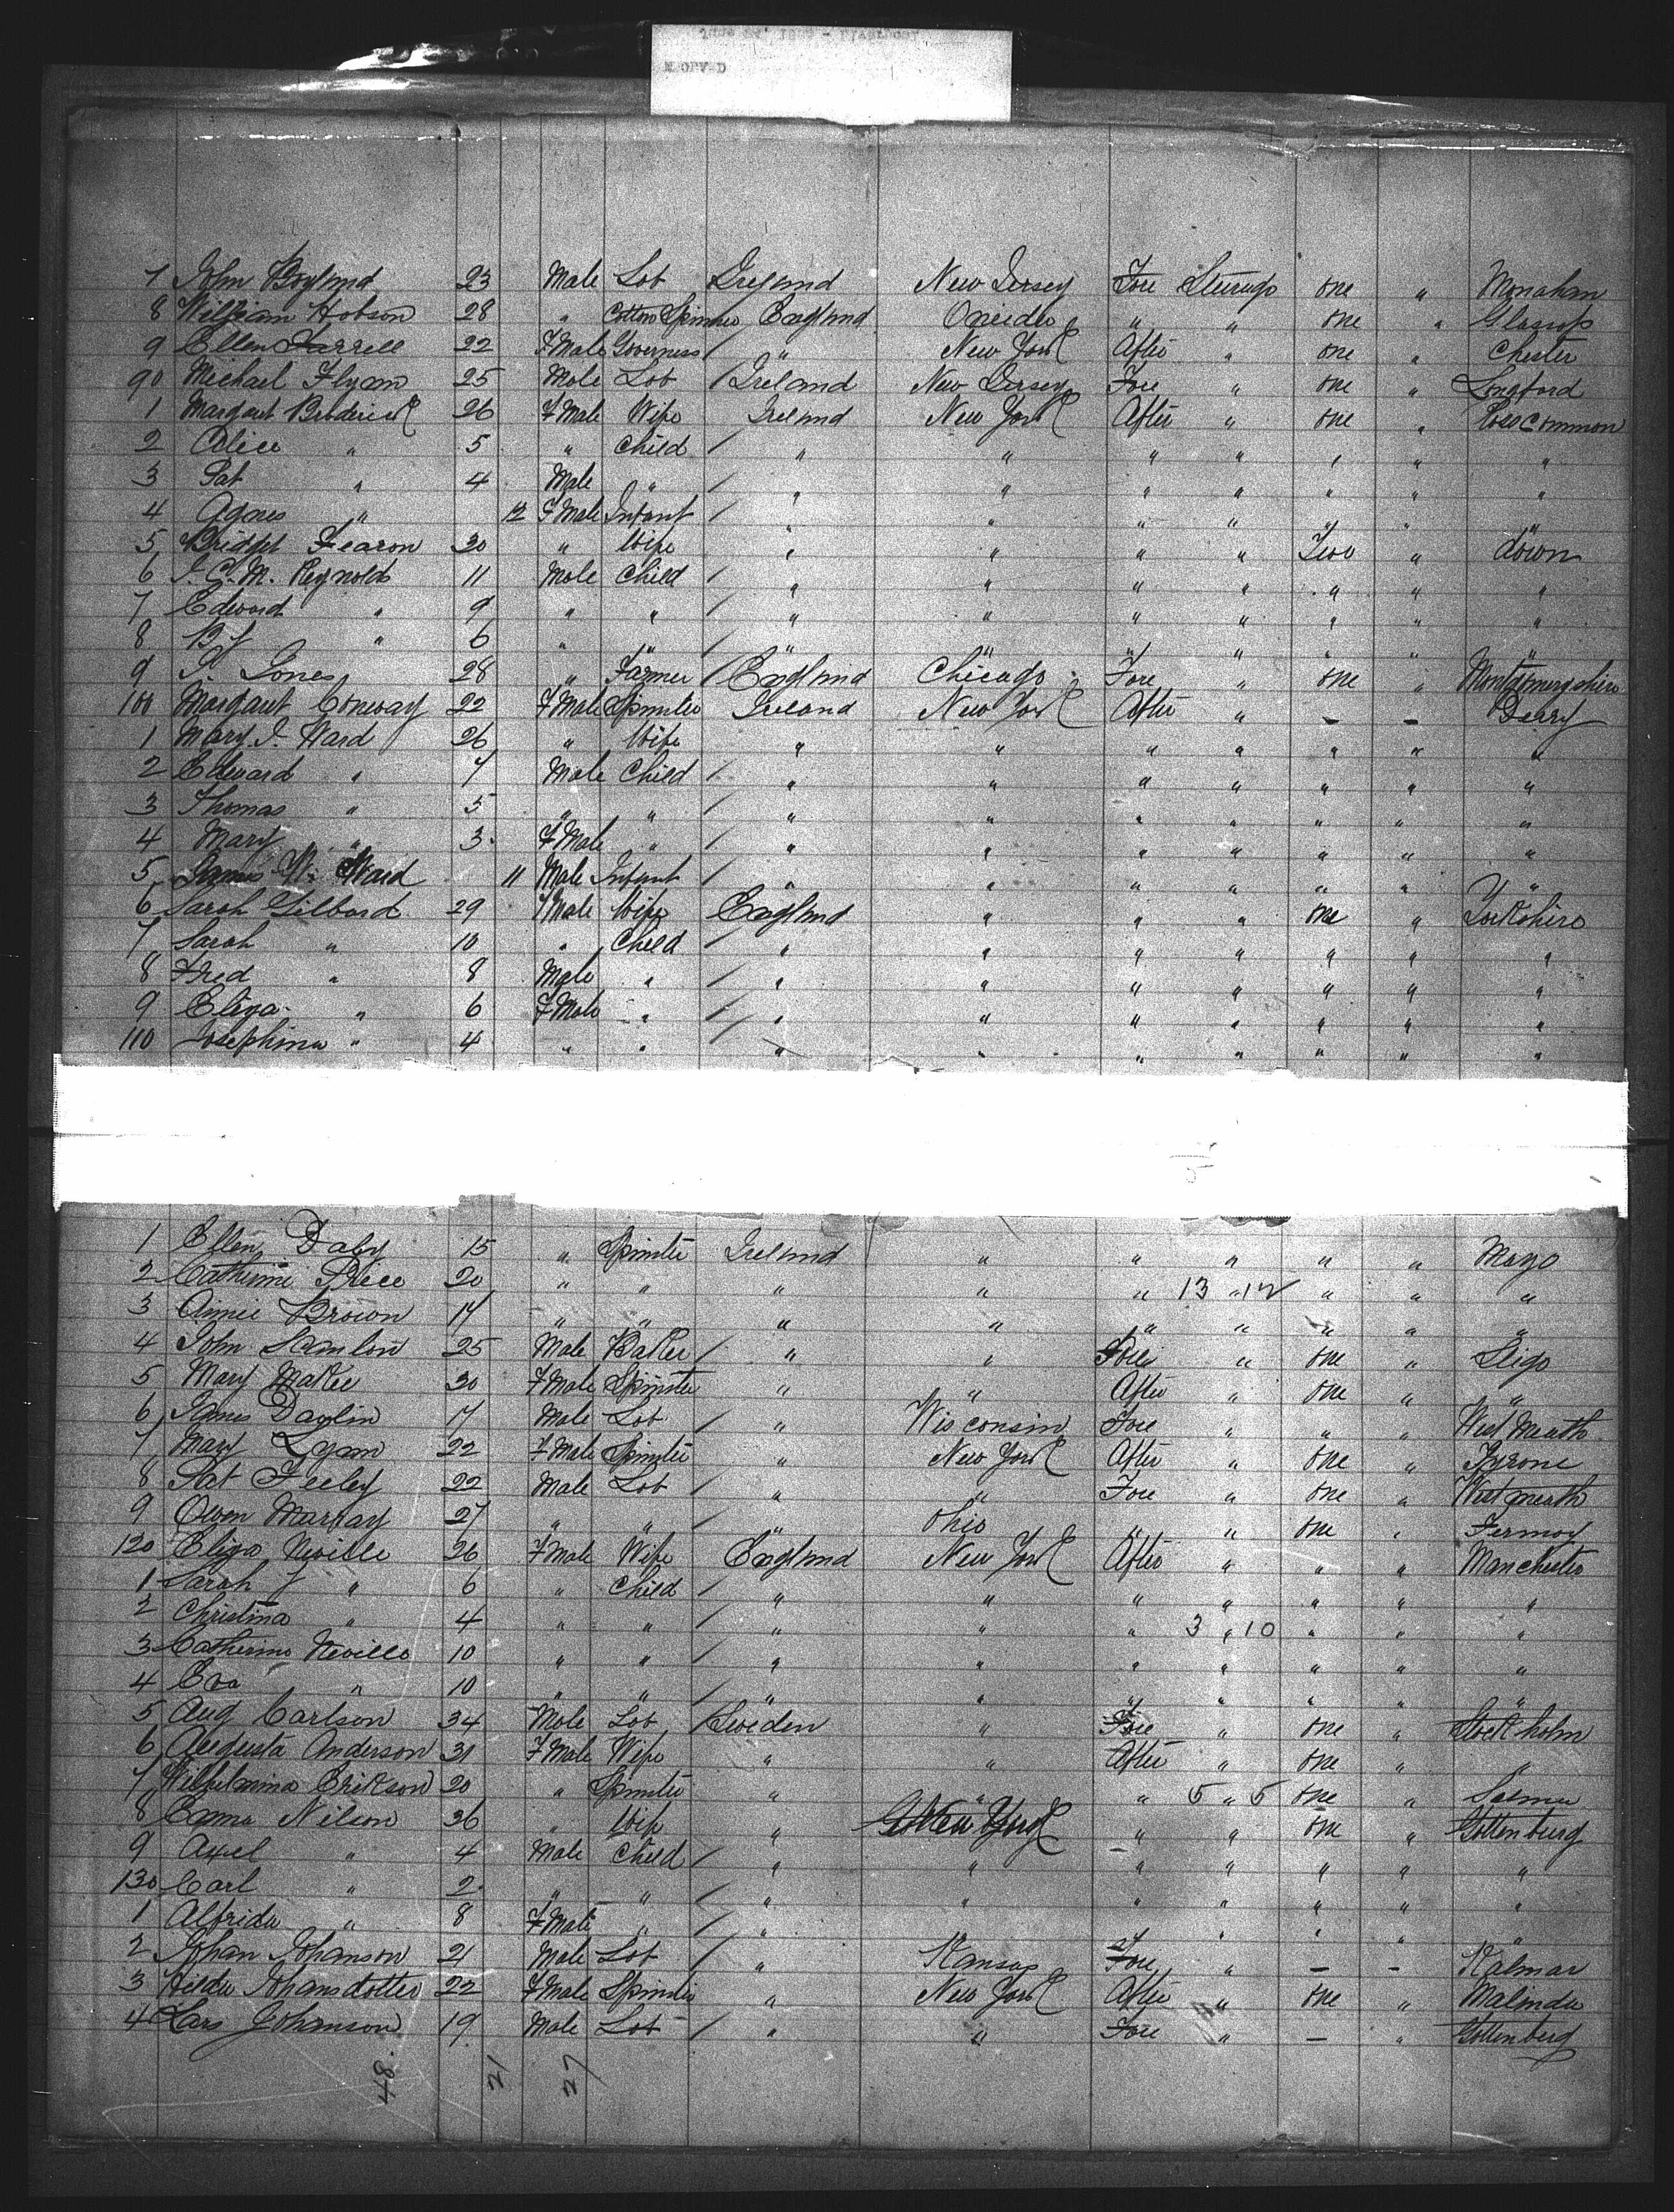 7 John Boylund 23 Male Lab Ireland New Jersey Fore Steerage one " Monahan
8 William Hobson 28 " Cotton Spinner England Oneida " " one " Glasop
9 Ellen Farrell 22 F Male Governess / " New York After " one " Chester
90 Michael Flynn 25 Male Lab / Ireland New Jersey Fore " one " Longford
1 Margaret Broderick 26 F Male Wife Ireland New York After " one " Ross Common
2 Alice " 5 " Child / " " " " " " "
3 Pat " 4 Male " / " " " " " " "
4 Agnes " 12 F Male Infant / " " " " " " "
5 Bridget Fearon 30 " Wife " " " " Two " down
6 J. C. M. Reynolds 11 Male Child / " " " " " " "
7 Edward " 9 " " / " " " " " " "
8 B J " 6 " " / " " " " " " "
9 T. Jones 28 " Farmer / England Chicago Fore " one " Montgomeryshire
100 Margaret Conway 22 F Male Spinster Ireland New York After " – – Derry
1 Mary J. Ward 26 " Wife " " " " " " "
2 Edward " 7 Male Child / " " " " " " "
3 Thomas " 5 " " / " " " " " " "
4 Mary " 3 F Male " / " " " " " " "
5 James W. Ward 11 Male Infant / " " " " " " "
6 Sarah Gilbard 29 F Male Wife England " " " one " Yorkshire
7 Sarah " 10 " Child / " " " " " " "
8 Fred " 8 Male " / " " " " " " "
9 Eliza " 6 F Male " / " " " " " " "
110 Josephina " 4 " " / " " " " " " "
1 Ellen Daly 15 " Spinster Ireland " " " " " Mayo
2 Catherine Price 20 " " " " " 13 " 12 " " "
3 Aimie Brown 17 " " " " " " " " "
4 John Scanlon 25 Male Baker / " " Fore " one " Sligo
5 Mary McKee 30 F Male Spinster " " After " one " "
6 James Daylin 17 Male Lab / " Wisconsin Fore " " " West Meath
7 Mary Lynn 22 F Male Spinster " New York After " one " Tyrone
8 Pat Feeley 22 Male Lab / " " Fore " one " Westmeath
9 Owen Murray 27 " " / " Ohio " " one " Fermoy
120 Eliza Neville 26 F Male Wife England New York After " " " Manchester
1 Sarah J " 6 " Child / " " " " " " "
2 Christina " 4 " " / " " " 3 " 10 " " "
3 Catherine Neville 10 " " / " " " " " " "
4 Eva " 10 " " / " " " " " " "
5 Aug Carlson 34 Male Lab / Sweden " Fore " one " Stockholm
6 Augusta Anderson 31 F Male Wife " " After " one " "
7 Wilhelmina Erikson 20 " Spinster " " " 5 " 5 one "
8 Emma Nilson 36 " Wife " New York " " one " Gottenburg
9 Axel " 4 Male Child / " " " " " " "
130 Carl " 2 " " / " " " " " " "
1 Alfrida " 8 F Male " / " " " " " " "
2 Johan Johanson 21 Male Lab / " Kansas Fore " – – Kalmar
3 Hilda Johansdotter 22 F Male Spinster " New York After " one "
4 Lars Johanson 19 Male Lab / " " Fore " – " Gottenberg
48 21 27